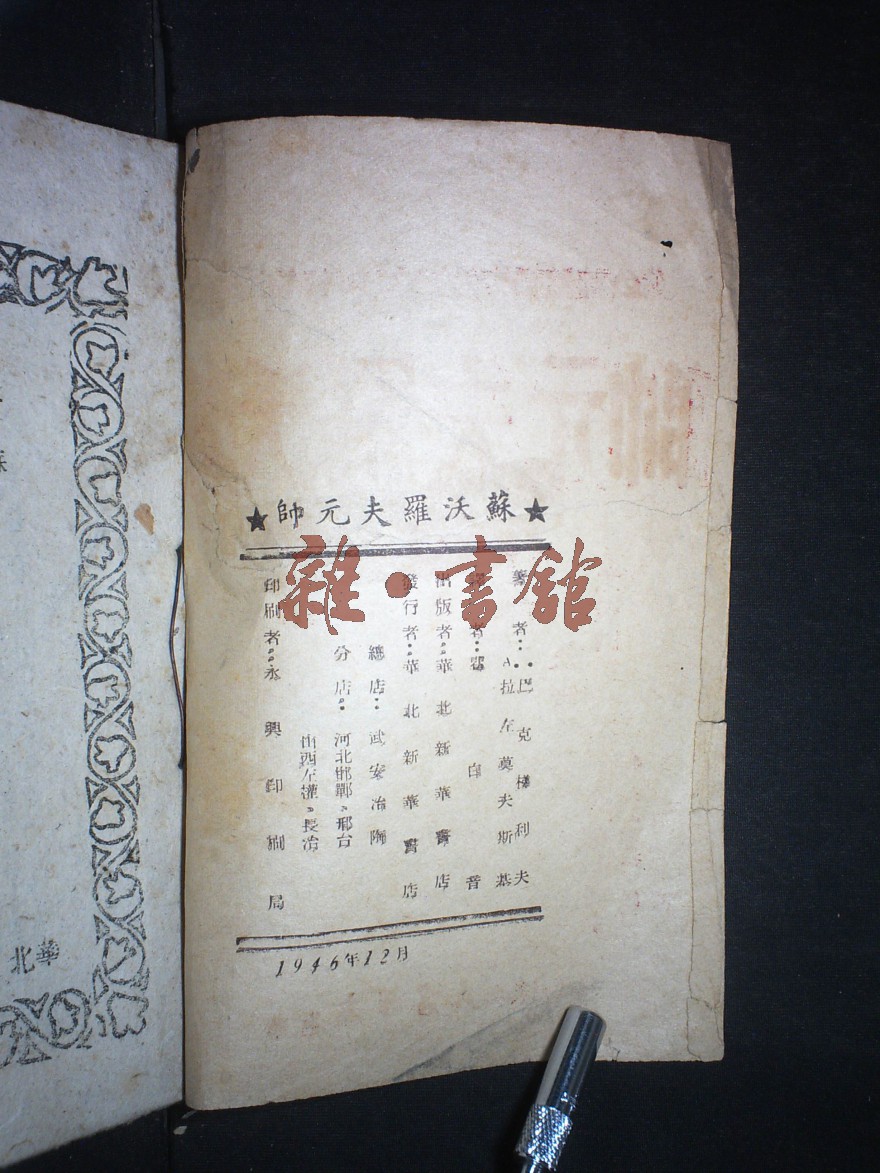 蘇
華北
★蘇沃羅夫元帥★
著者：巴克 利夫
A拉左莫夫斯基
者： 音
出版者：華北新華書店
發行者：華北新華書店
總店：武安冶陶
分店：河北邯鄲、邢台
山西左權、長治
印刷者：永興印刷局
1946年12月
雜·書館